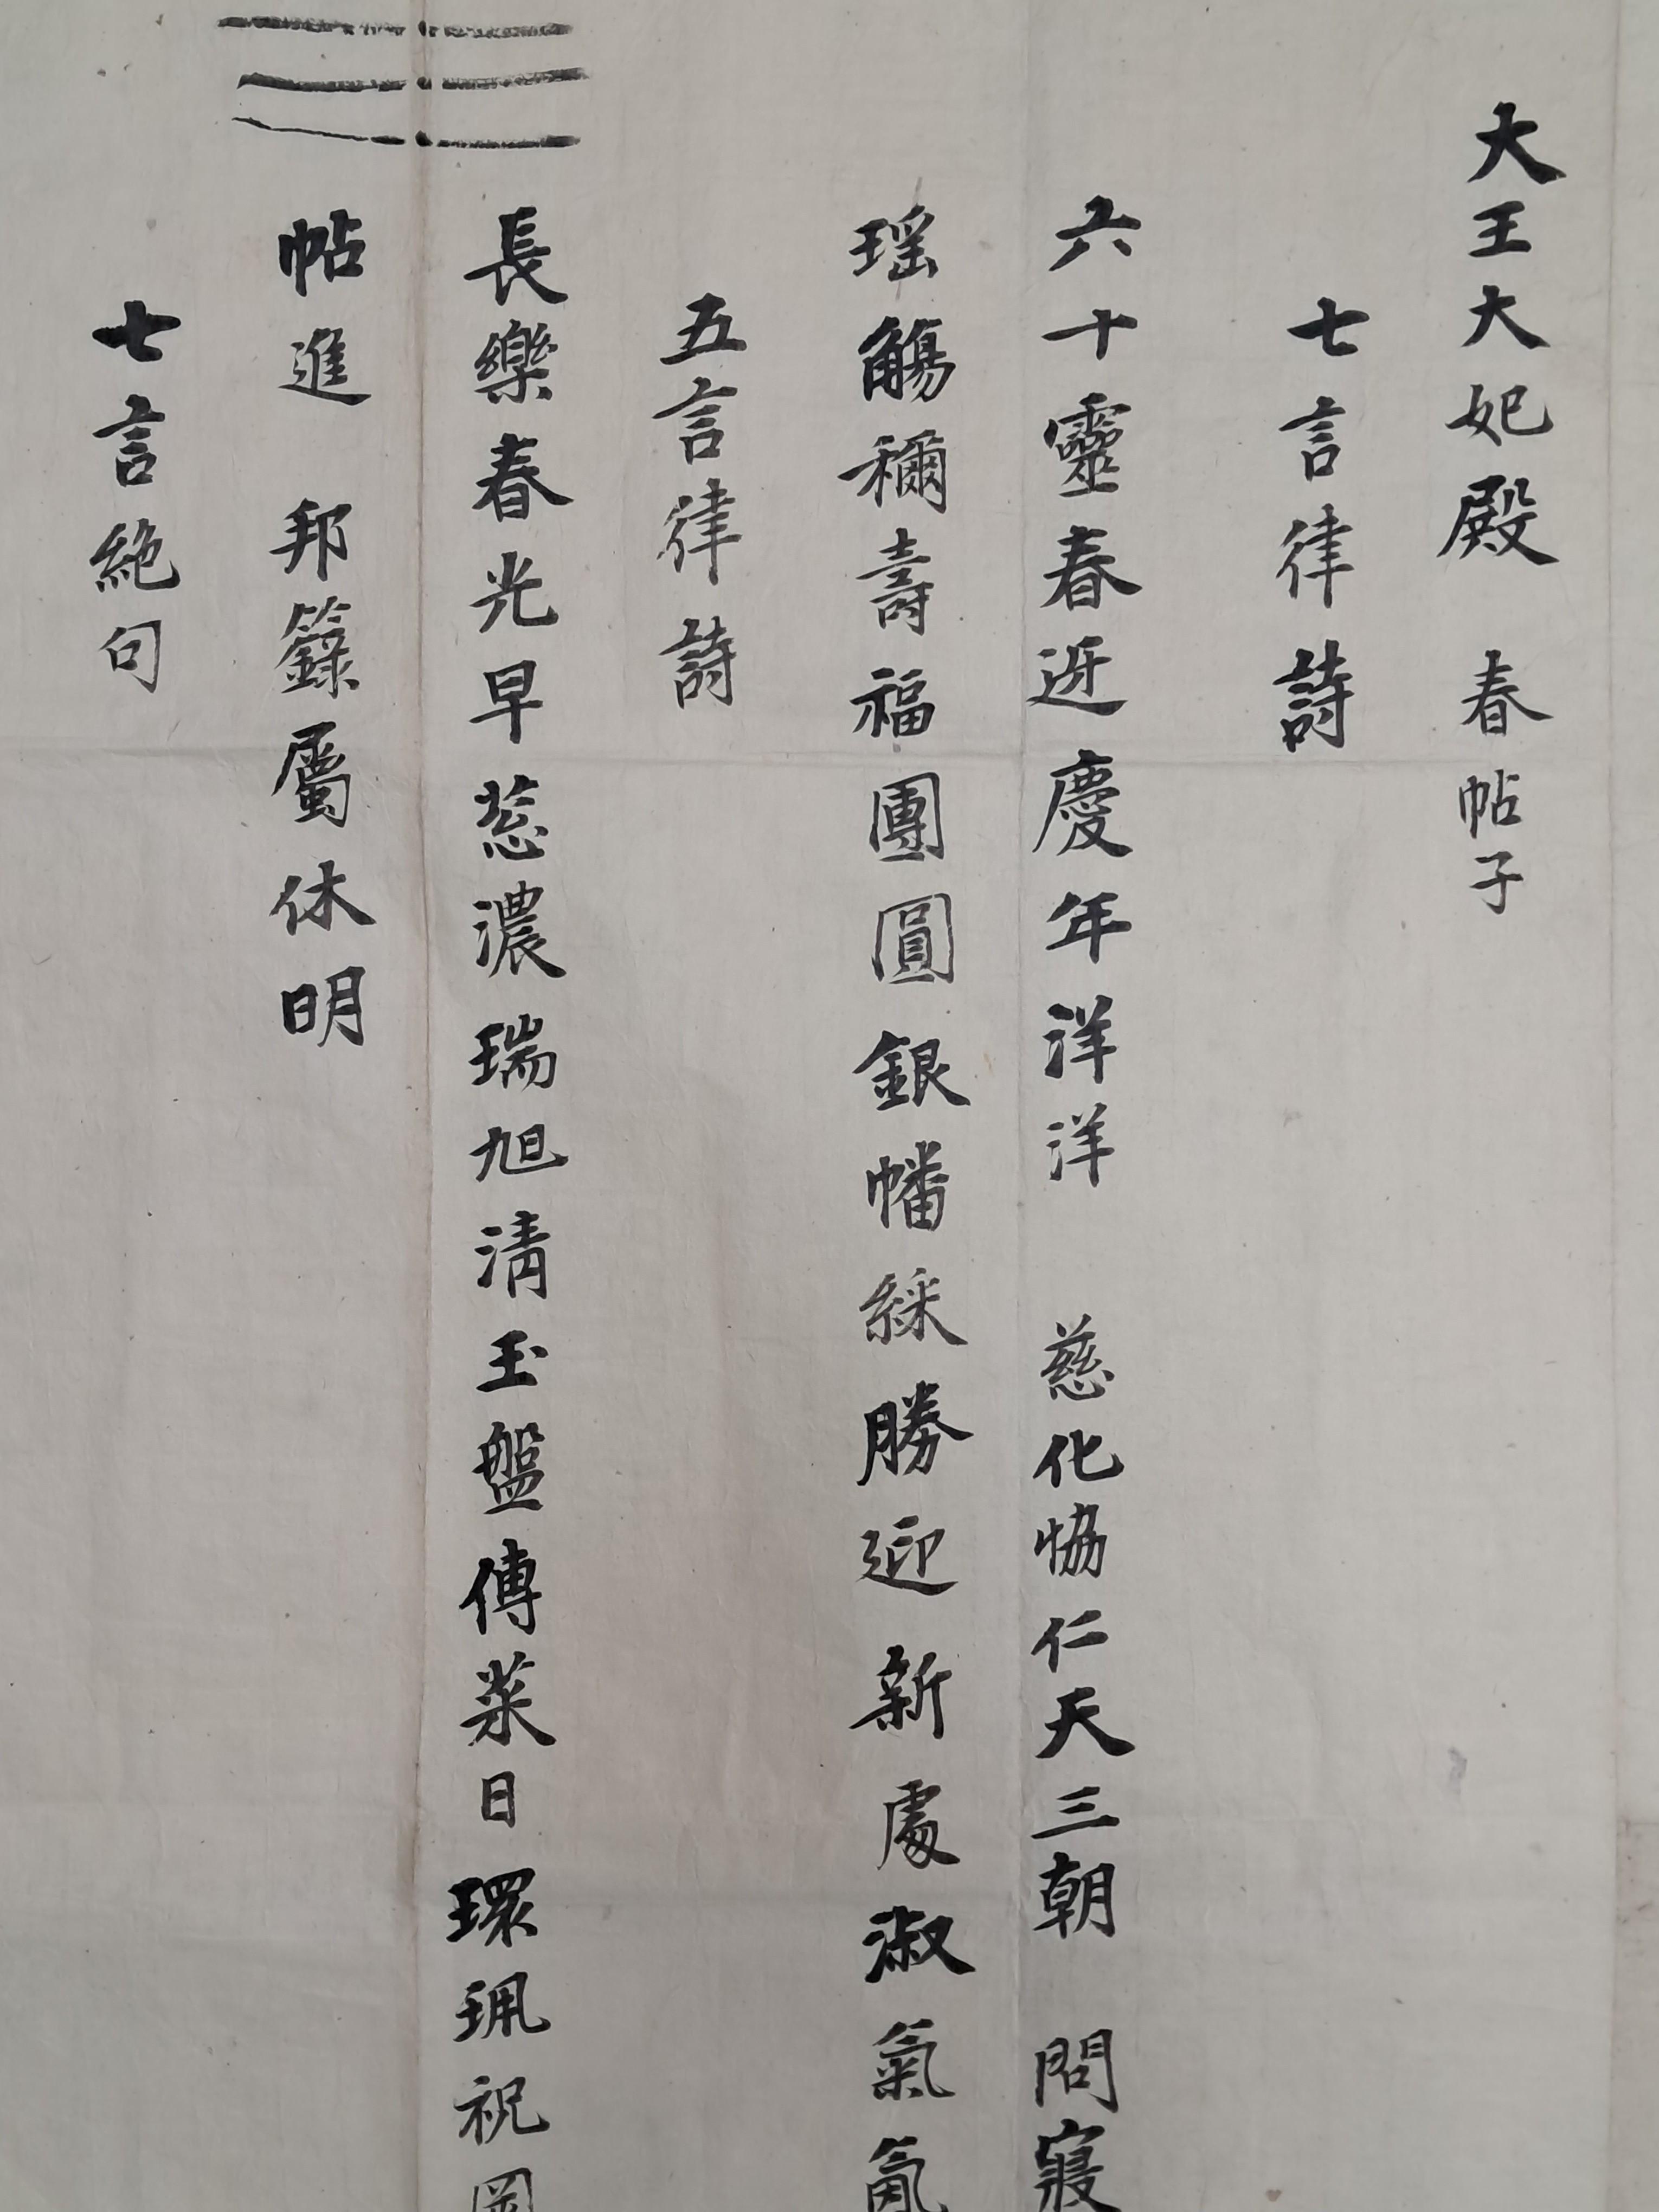 大王大妃殿 春帖子
七言律詩
六十靈春近慶年洋洋 慈化協仁天三朝 問寢
瑶觴穪壽福團圓銀幡綵勝迎新處淑氣氤
五言律詩
長樂春光早慈濃瑞旭淸玉盤傳菜日環珮祝岡
帖進 邦籙屬休明
七言絶句